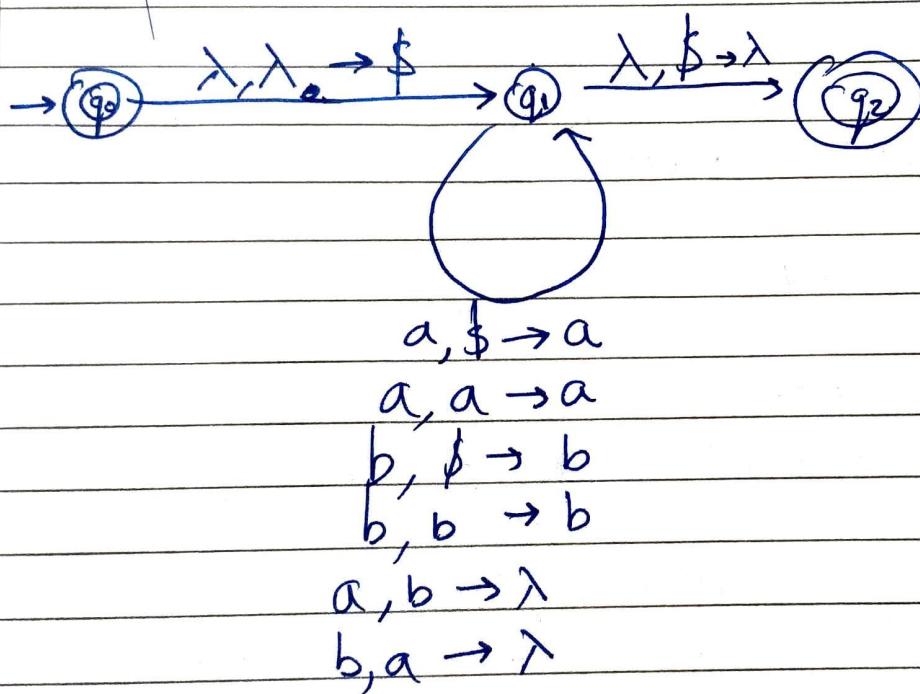 λ, λ → $ λ, $ → λ
→ q₀ q₁ q₂
a, $ → a
a, a → a
b, $ → b
b, b → b
a, b → λ
b, a → λ